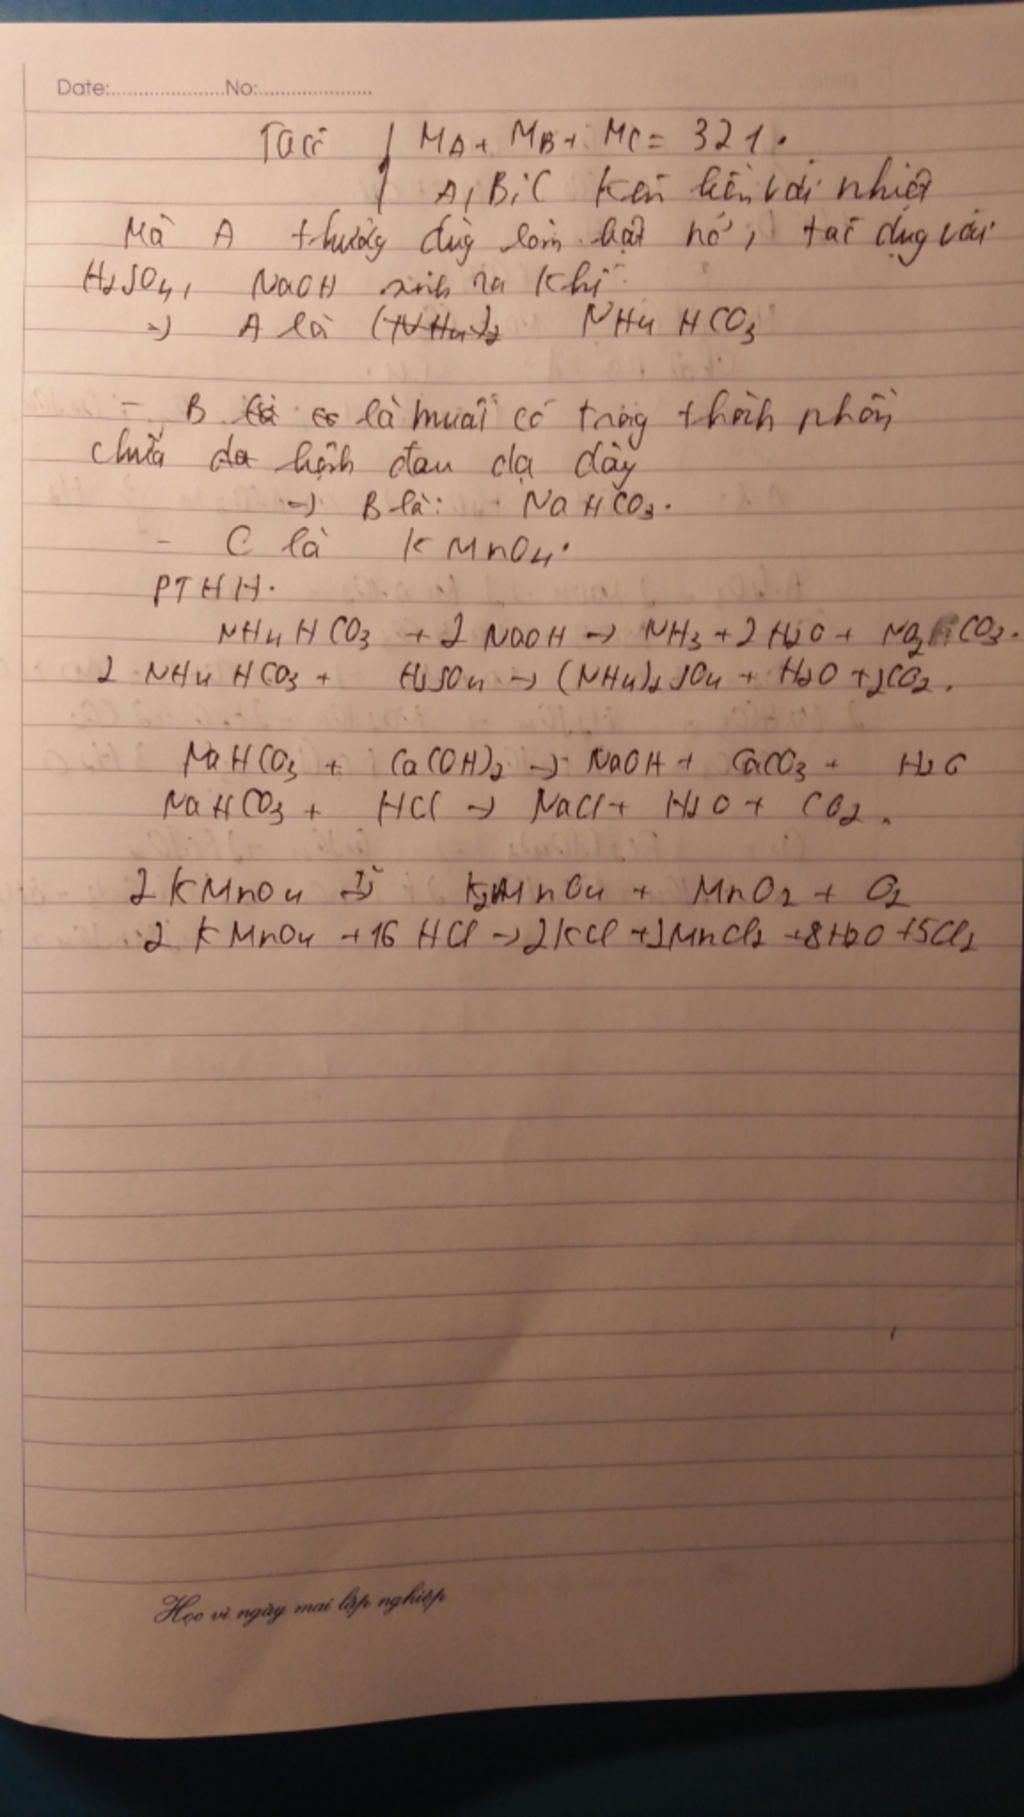 Date:.....................No:.....................
Ta có { MA + MB + MC = 321.
A, B, C kém bền với nhiệt
Mà A thường dùng làm bột nở, tác dụng với
H2SO4, NaOH sinh ra khí
=> A là (NH4)2 NH4HCO3
- B là muối có trong thành phần
chữa bệnh đau dạ dày
=> B là: NaHCO3.
- C là KMnO4.
PTHH.
NH4HCO3 + 2NaOH -> NH3 + 2H2O + Na2CO3.
2NH4HCO3 + H2SO4 -> (NH4)2SO4 + H2O + 2CO2.
NaHCO3 + Ca(OH)2 -> NaOH + CaCO3 + H2O
NaHCO3 + HCl -> NaCl + H2O + CO2.
2KMnO4 -> K2MnO4 + MnO2 + O2
2KMnO4 + 16HCl -> 2KCl + 2MnCl2 + 8H2O + 5Cl2
Học vì ngày mai lập nghiệp